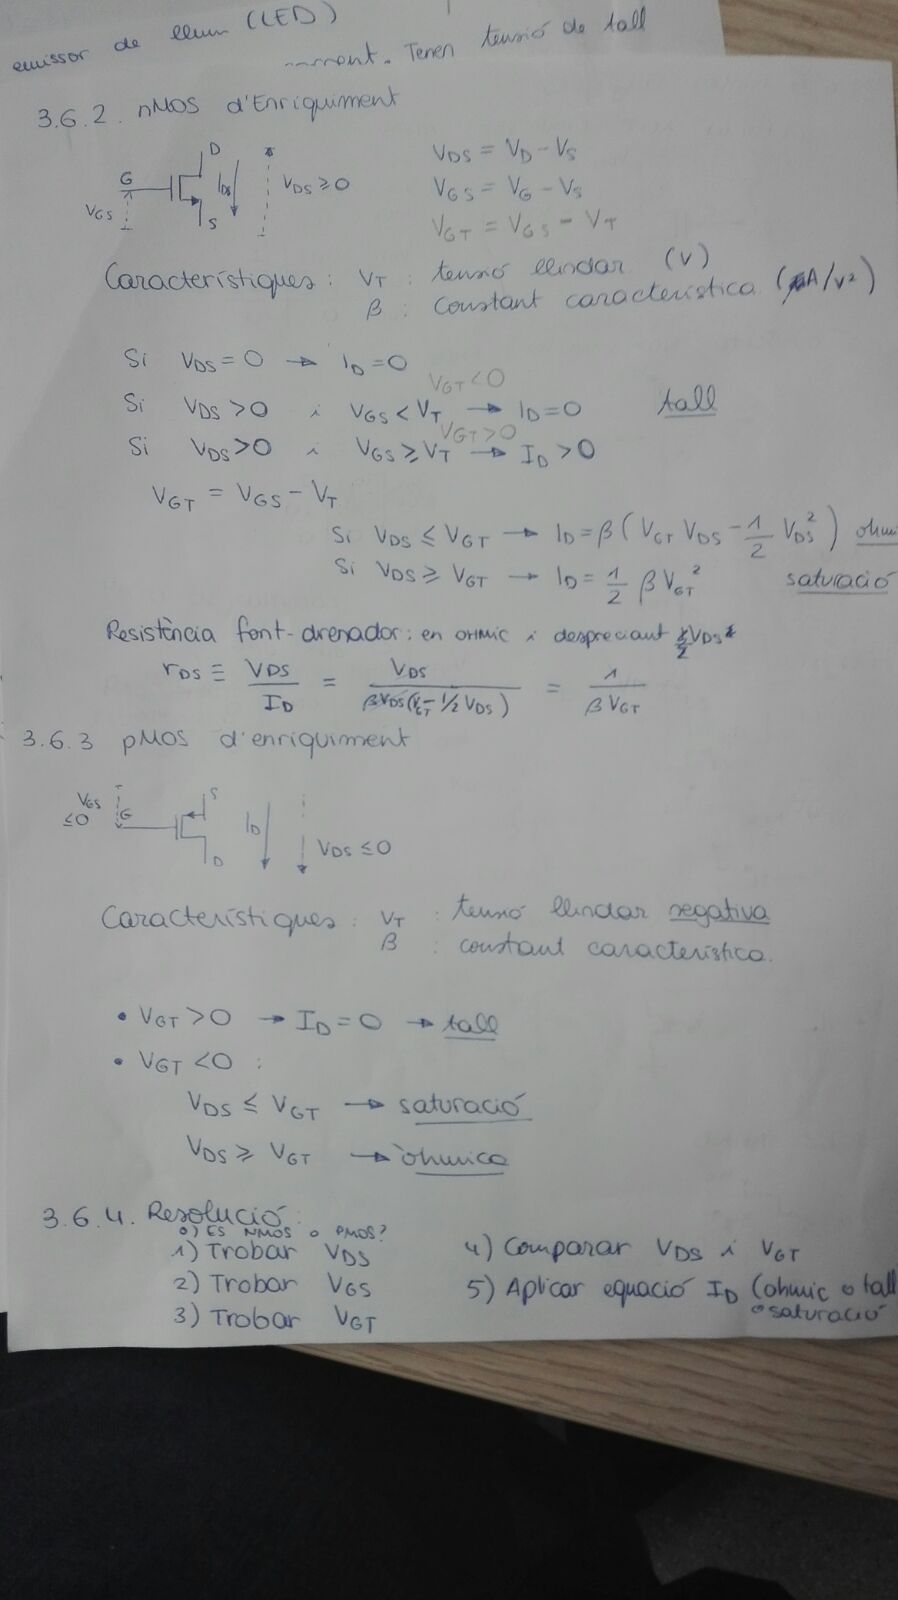 emissor de llum (LED)
Tenen tensió de tall
3.6.2. nMOS d'Enriquiment
D
G
V_GS
I_DS
V_DS ≥ 0
S
V_DS = V_D - V_S
V_GS = V_G - V_S
V_GT = V_GS - V_T
Característiques: V_T : tensió llindar (V)
β : constant característica (A/V²)
Si V_DS = 0 → I_D = 0
V_GT < 0
Si V_DS > 0 i V_GS < V_T → I_D = 0 tall
V_GT > 0
Si V_DS > 0 i V_GS ≥ V_T → I_D > 0
V_GT = V_GS - V_T
Si V_DS ≤ V_GT → I_D = β (V_GT V_DS - 1/2 V_DS²)
Si V_DS ≥ V_GT → I_D = 1/2 β V_GT² saturació
Resistència font-drenador: en OHMIC i despreciant
r_DS ≡ V_DS / I_D = V_DS / βV_DS(V_GT - 1/2 V_DS) = 1 / β V_GT
3.6.3 pMOS d'enriquiment
V_GS ≤0
G
S
I_D
D
V_DS ≤ 0
Característiques: V_T : tensió llindar negativa
β : constant característica.
• V_GT > 0 → I_D = 0 → tall
• V_GT < 0 :
V_DS ≤ V_GT → saturació
V_DS ≥ V_GT → òhmica
3.6.4. Resolució:
0) ES NMOS o PMOS?
1) Trobar V_DS
2) Trobar V_GS
3) Trobar V_GT
4) Comparar V_DS i V_GT
5) Aplicar equació I_D (ohmic o tall
o saturació